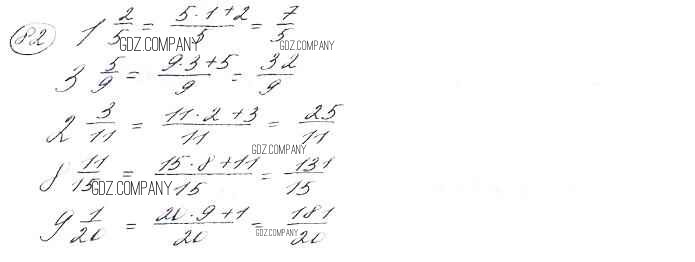 82) 1 2/5 = (5·1+2)/5 = 7/5
GDZ.COMPANY GDZ.COMPANY
3 5/9 = (9·3+5)/9 = 32/9
2 3/11 = (11·2+3)/11 = 25/11
GDZ.COMPANY
8 11/15 = (15·8+11)/15 = 131/15
GDZ.COMPANY
9 1/20 = (20·9+1)/20 = 181/20
GDZ.COMPANY